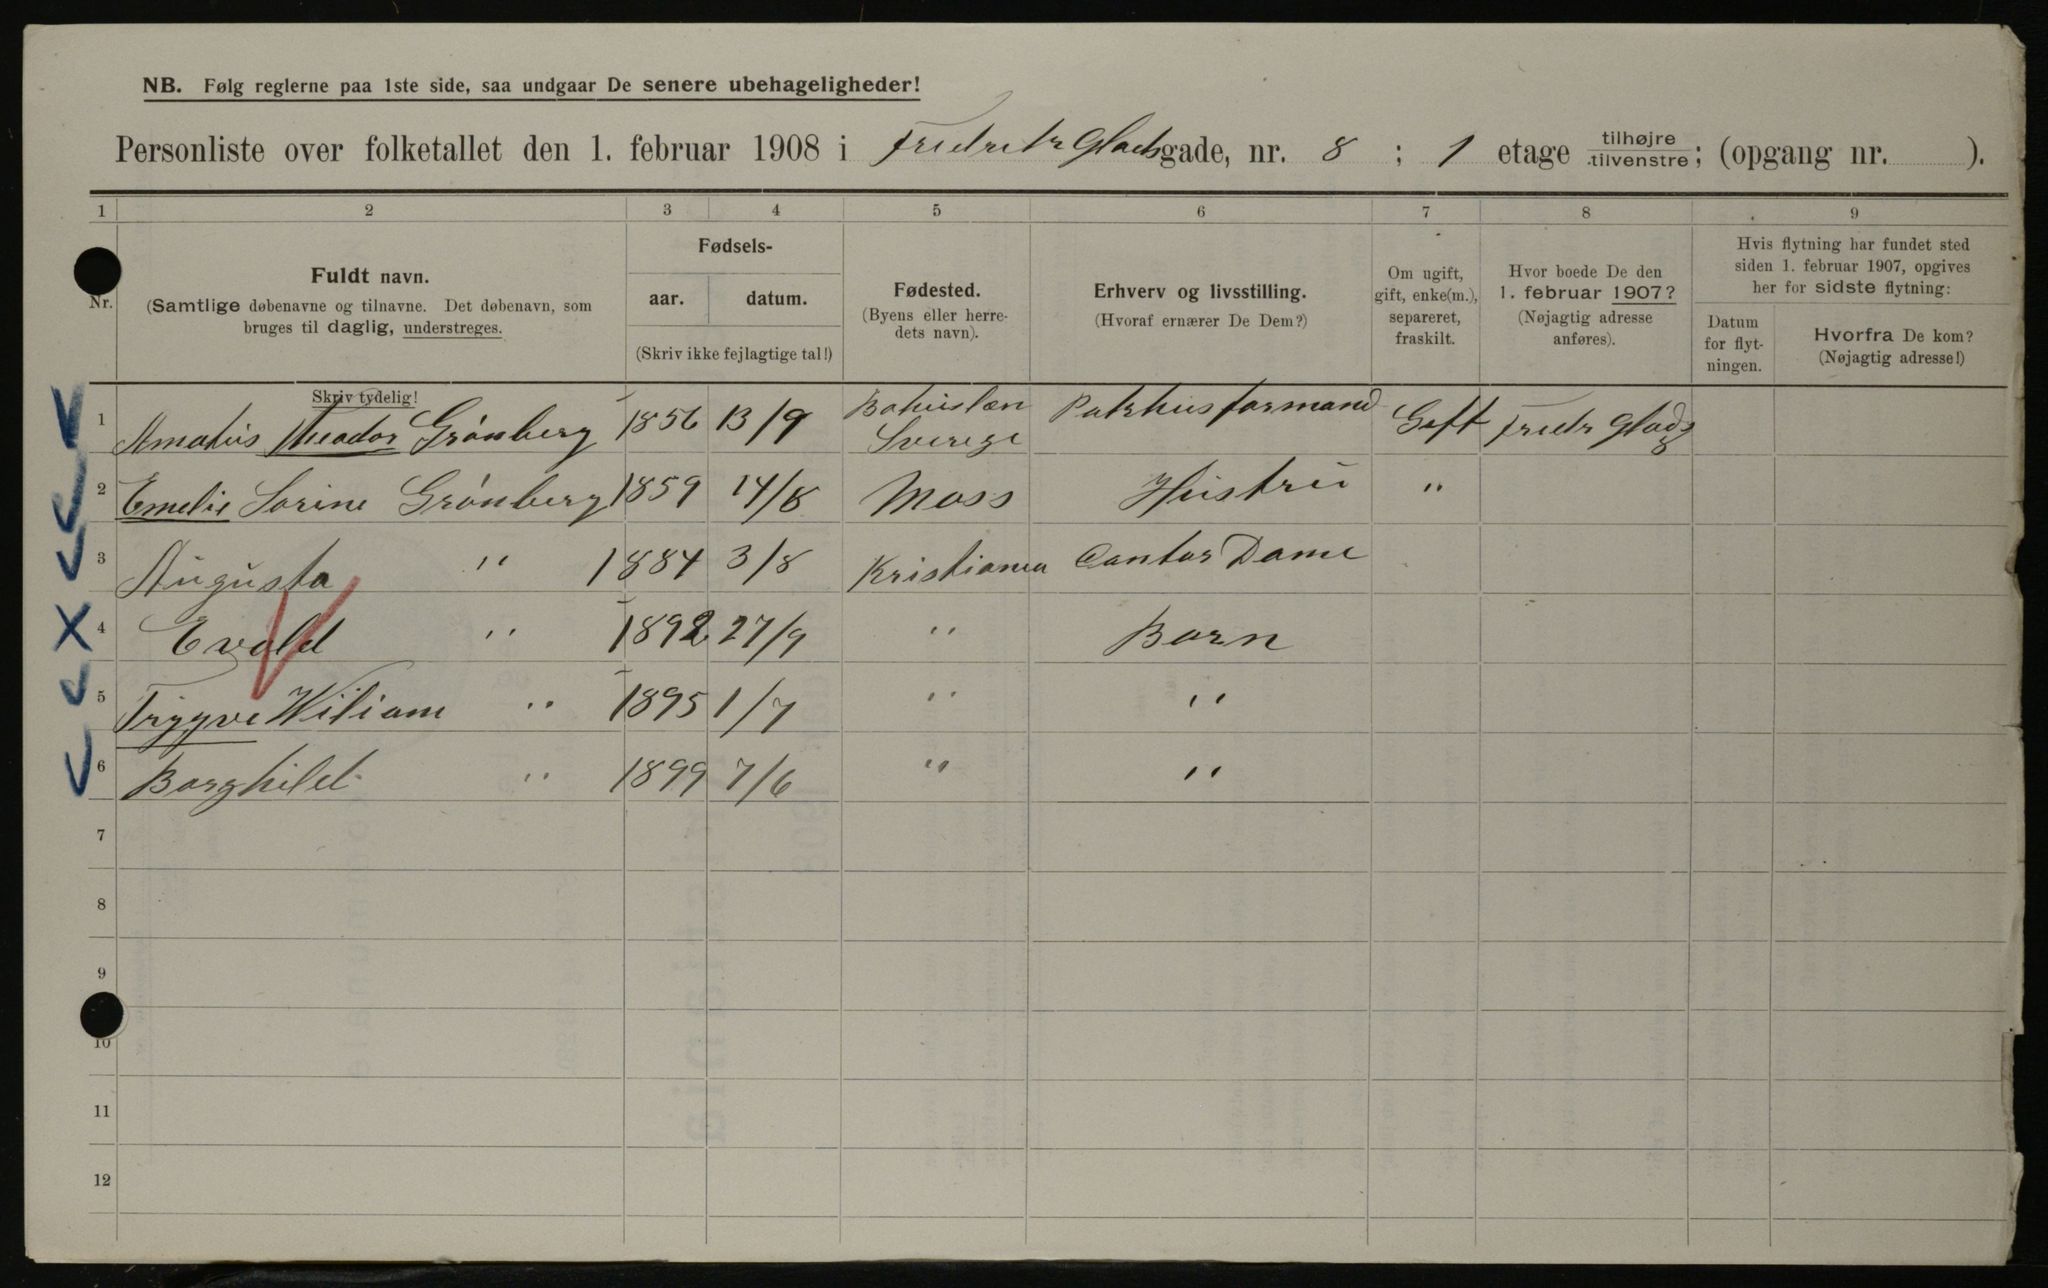 NB. Følg reglerne paa 1ste side, saa undgaar De senere ubehageligheder!
Personliste over folketallet den 1. februar 1908 i Fredrik Gladsgade, nr. 8 ; 1 etage tilhøjre tilvenstre; (opgang nr. ).
1 2 3 4 5 6 7 8 9
Nr.
Fuldt navn.
(Samtlige døbenavne og tilnavne. Det døbenavn, som
bruges til daglig, understreges.
Fødsels-
aar. datum.
(Skriv ikke fejlagtige tal!)
Fødested.
(Byens eller herre-
dets navn).
Erhverv og livsstilling.
(Hvoraf ernærer De Dem?)
Om ugift,
gift, enke(m.),
separeret,
fraskilt.
Hvor boede De den
1. februar 1907?
(Nøjagtig adresse
anføres).
Hvis flytning har fundet sted
siden 1. februar 1907, opgives
her for sidste flytning:
Datum
for flyt-
ningen.
Hvorfra De kom?
(Nøjagtig adresse!)
Skriv tydelig!
1 Amatus Theodor Grønberg 1856 13/9 Bohuslæn Sverige Pakhusformand Gift Fredr Glads 8
2 Emelie Sorine Grønberg 1859 14/8 Moss Hustru "
3 Augusta " 1884 3/8 Kristiania Contor Dame
4 Evald " 1892 27/9 " Barn
5 Trygve Wiliam " 1895 1/7 " "
6 Borghild " 1899 7/6 " "
7
8
9
10
11
12